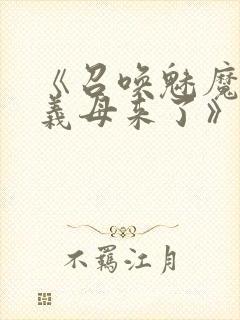 《召唤魅魔
義母来了》
不羈江月